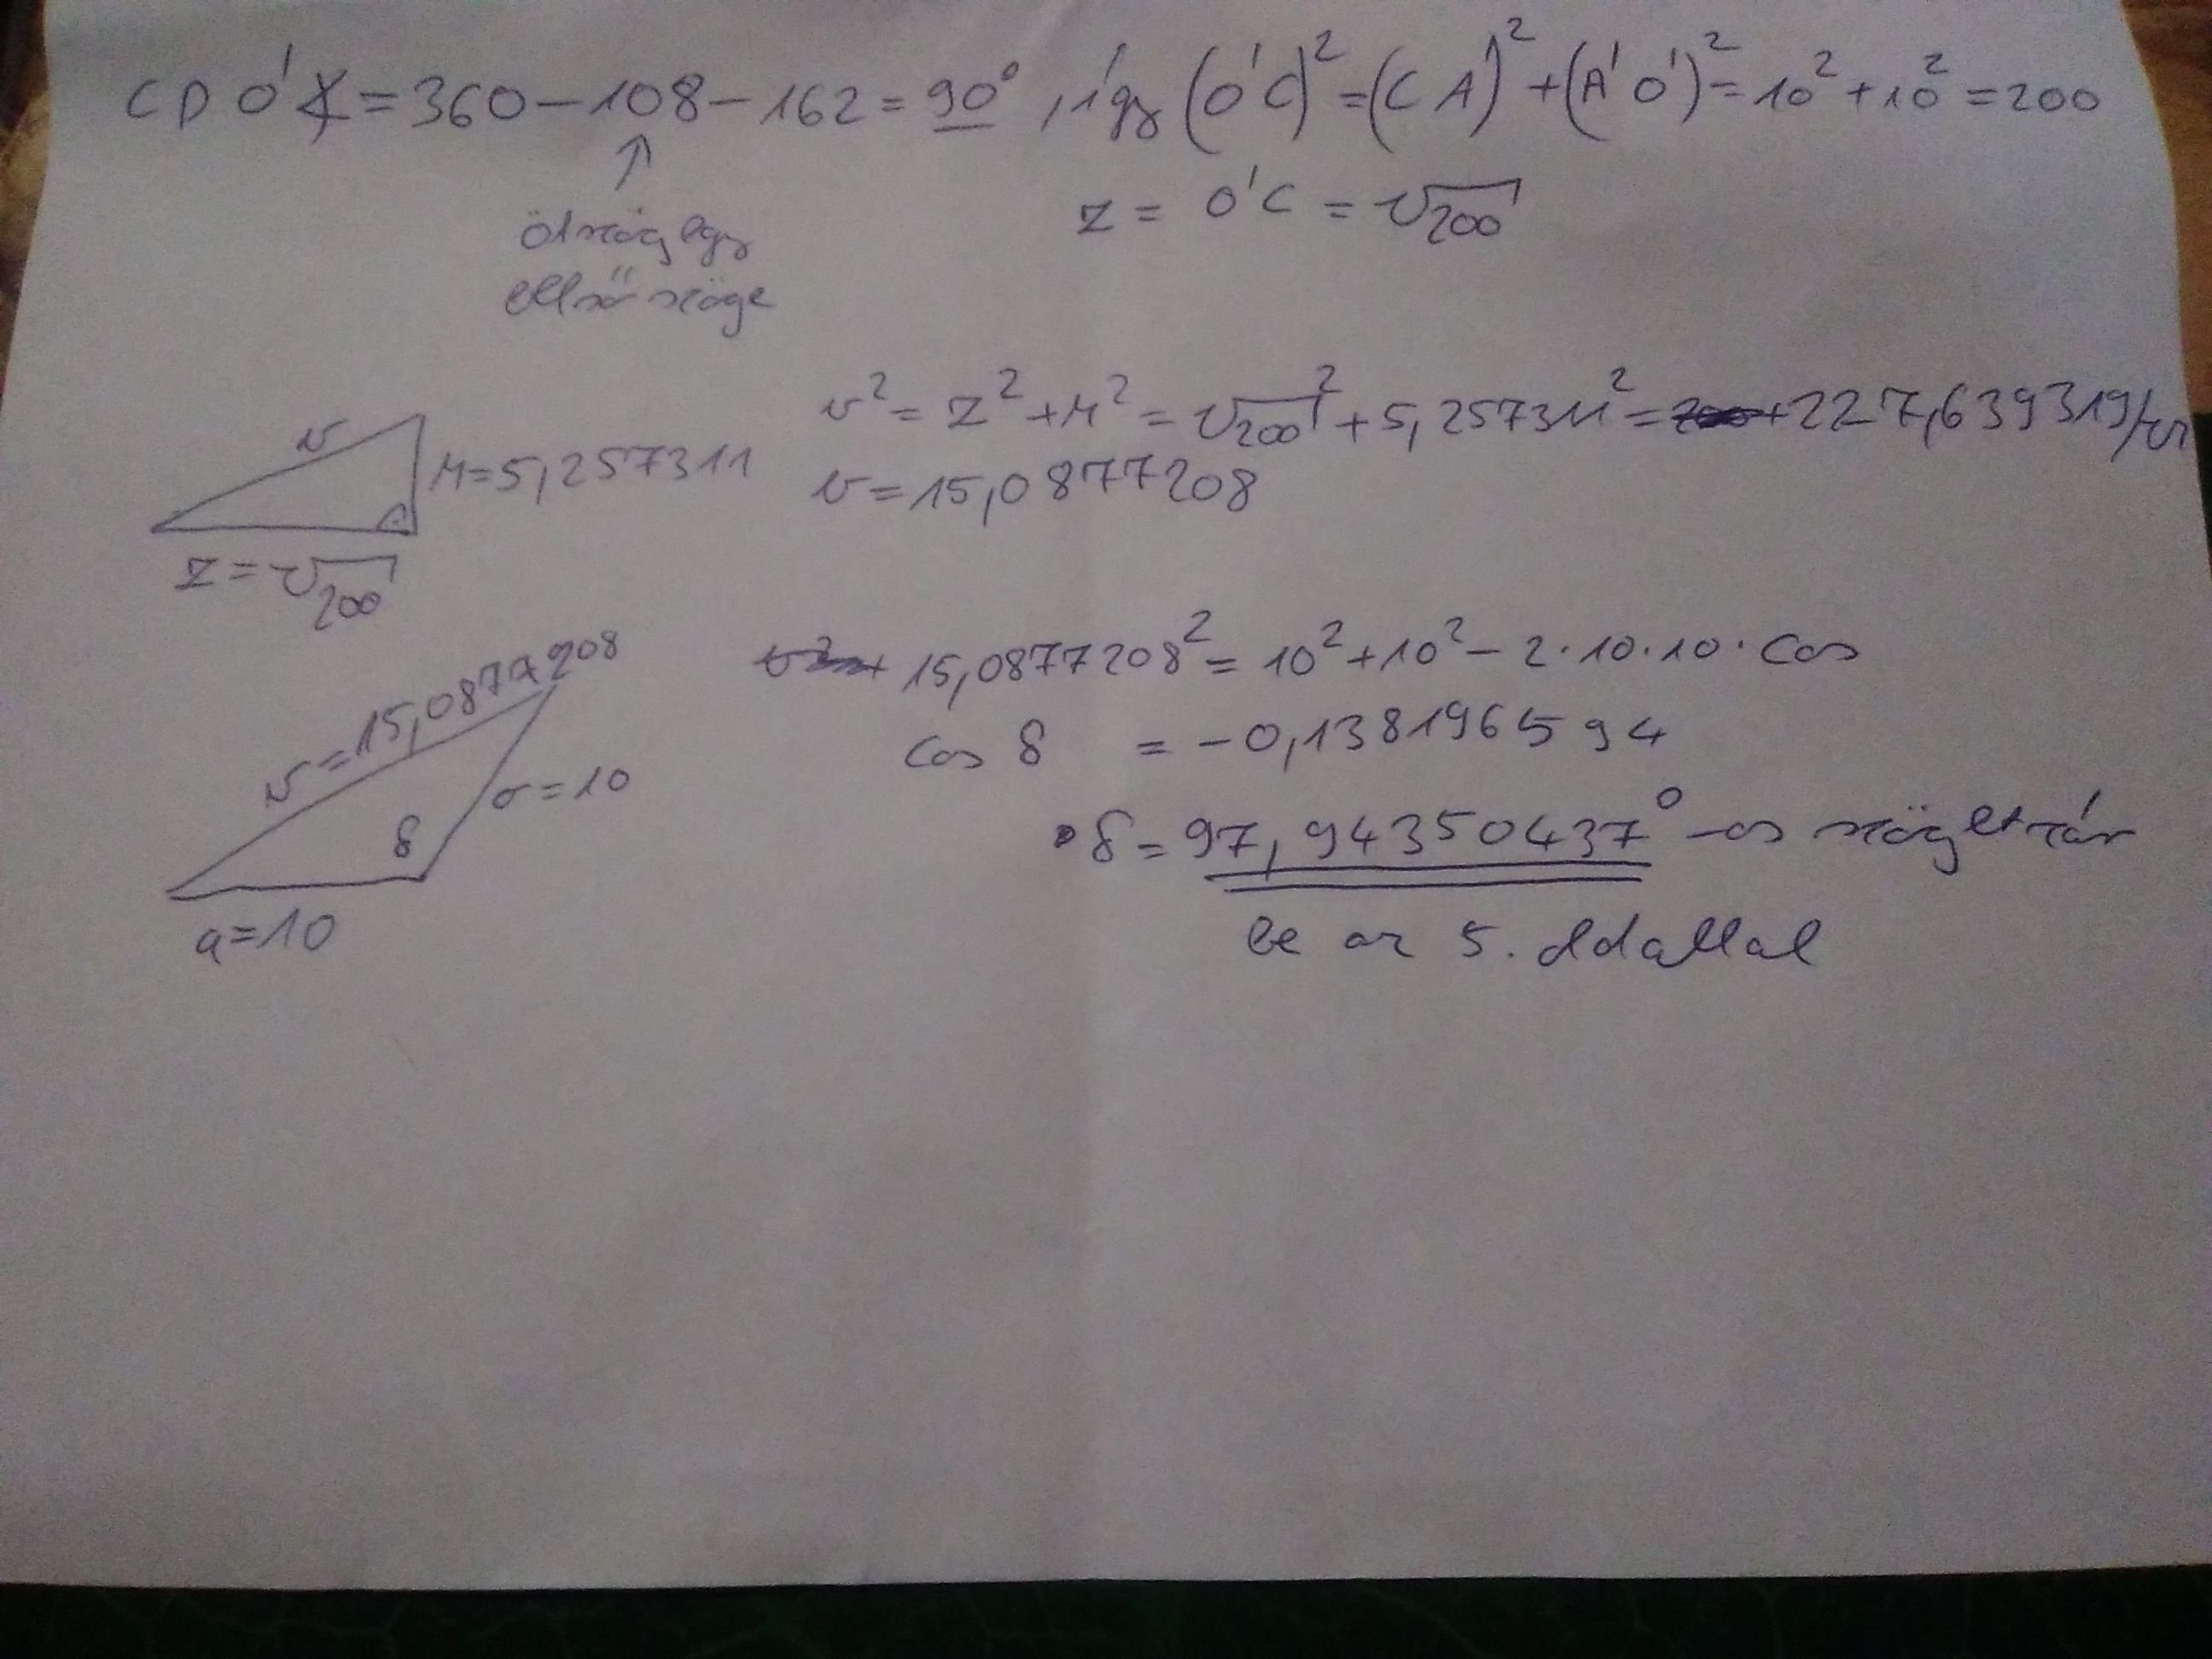 CDO'∢=360-108-162=90°, így (O'C)²=(CA')²+(A'O')²=10²+10²=200
↑
ötszög egy
belső szöge
z = O'C = √200
v
M=5,257311
z=√200
v²=z²+M²=√200²+5,257311²=227,639319/√
v=15,0877208
v=15,0877208
σ=10
δ
a=10
15,0877208²=10²+10²-2·10·10·cos
cos δ = -0,1381966594
δ=97,94350437°-os szöget zár
be az 5. oldallal